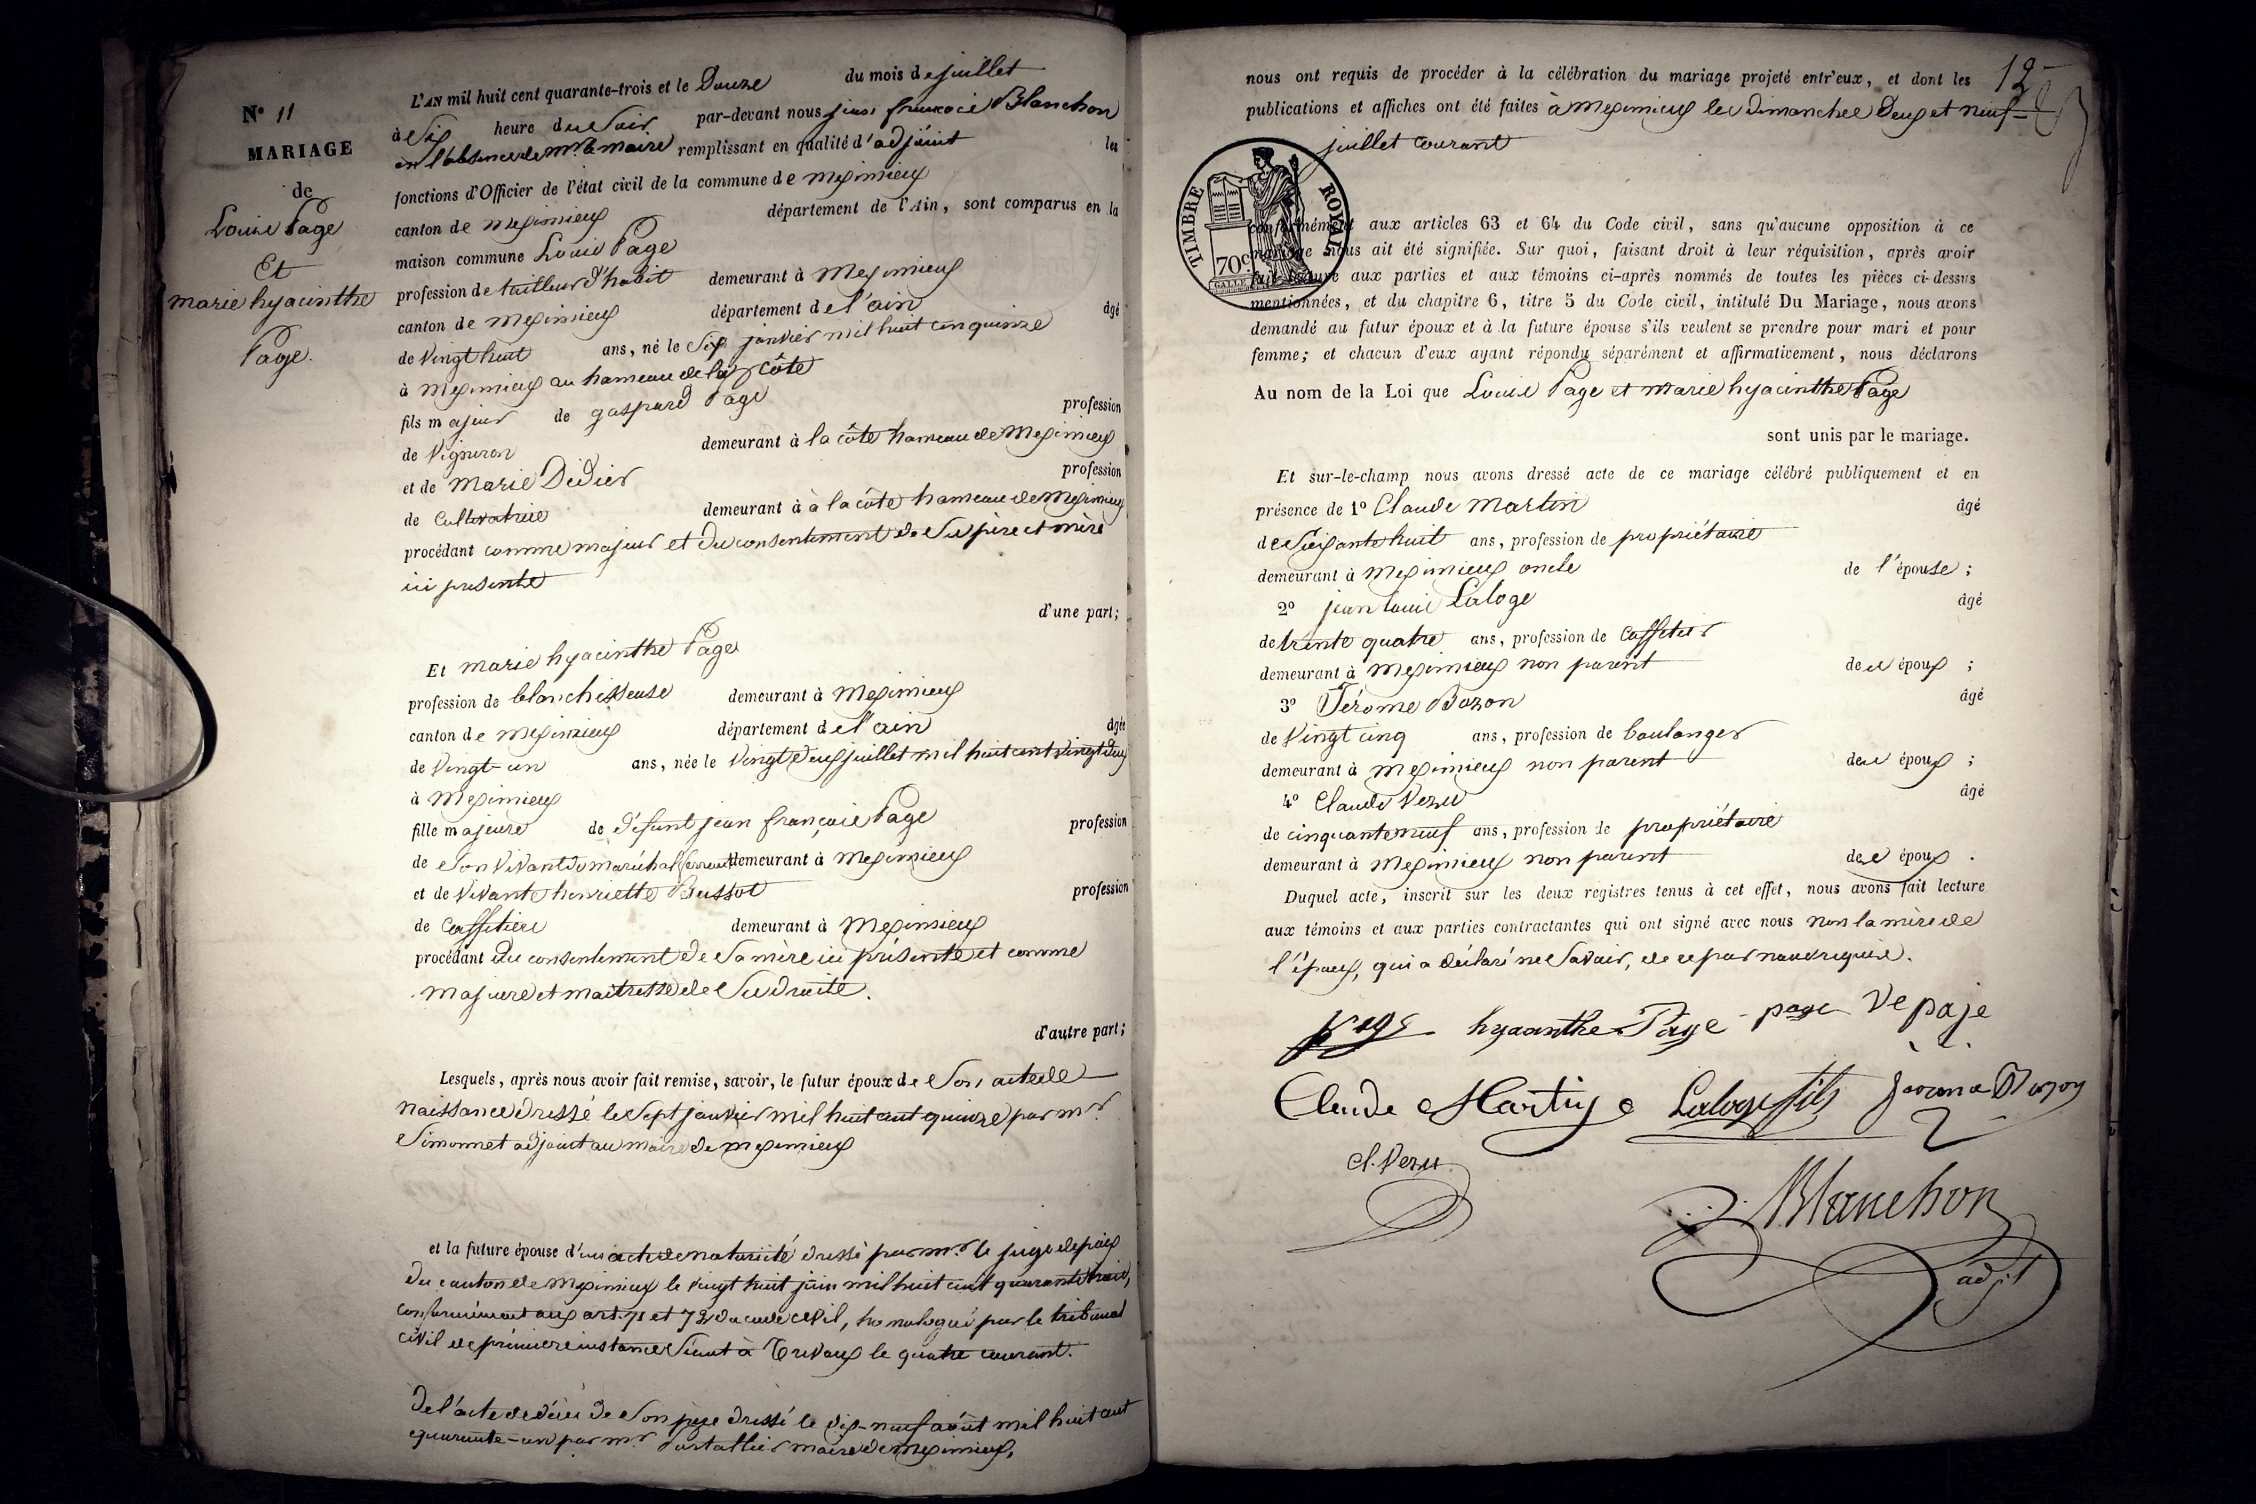 N° 11
MARIAGE
de
Louis Page
Et
marie hyacinthe
Page.
L'AN mil huit cent quarante-trois et le Douze du mois de juillet
à Six heure du Soir par-devant nous jean francois Blanchon
en l'absence de Mr le maire remplissant en qualité d'adjoint les
fonctions d'Officier de l'état civil de la commune de meximieux
canton de meximieux département de l'Ain, sont comparus en la
maison commune Louis Page
profession de tailleur d'habit demeurant à meximieux
canton de meximieux département de l'ain âgé
de vingt huit ans, né le Six janvier mil huit cent quinze
à meximieux au hameau de la côte
fils majeur de gaspard Page profession
de Vigneron demeurant à la côte hameau de Meximieux
et de Marie Didier profession
de Cultivatrice demeurant à à la côte hameau de Meximieux
procédant comme majeur et du consentement de Ses père et mère
ici présents
d'une part;
Et marie hyacinthe Page
profession de blanchisseuse demeurant à Meximieux
canton de meximieux département de l'ain âgée
de Vingt-un ans, née le Vingt Deux juillet mil huit cent vingt deux
à Meximieux
fille majeure de Défunt jean françois Page profession
de Son Vivant de maréchal ferrant demeurant à Meximieux
et de Vivante henriette Bussot profession
de Caffetière demeurant à Meximieux
procédant Du consentement de Sa mère ici présente et comme
majeure et maitresse de Ses droits.
d'autre part;
Lesquels, après nous avoir fait remise, savoir, le futur époux de Son acte de
naissance dressé le Sept janvier mil huit cent quinze par Mr
Simonnet adjoint au maire de meximieux
et la future épouse d'un acte de notoriété dressé par Mr le juge de paix
du canton de Meximieux le vingt huit juin mil huit cent quarante trois,
conformément aux art. 71 et 72 du code civil, homologué par le tribunal
civil de première instance Séant à Trévoux le quatre courant.
De l'acte de décès de Son père dressé le dix-neuf août mil huit cent
quarante-un par Mr maire de Meximieux,
12
nous ont requis de procéder à la célébration du mariage projeté entr'eux, et dont les
publications et affiches ont été faites à Meximieux les dimanches Deux et neuf
juillet courant
TIMBRE ROYAL
70c
conformément aux articles 63 et 64 du Code civil, sans qu'aucune opposition à ce
mariage nous ait été signifiée. Sur quoi, faisant droit à leur réquisition, après avoir
fait lecture aux parties et aux témoins ci-après nommés de toutes les pièces ci-dessus
mentionnées, et du chapitre 6, titre 5 du Code civil, intitulé Du Mariage, nous avons
demandé au futur époux et à la future épouse s'ils veulent se prendre pour mari et pour
femme; et chacun d'eux ayant répondu séparément et affirmativement, nous déclarons
Au nom de la Loi que Louis Page et Marie hyacinthe Page
sont unis par le mariage.
Et sur-le-champ nous avons dressé acte de ce mariage célébré publiquement et en
présence de 1° Claude Martin âgé
de Soixante huit ans, profession de propriétaire
demeurant à meximieux oncle de l'épouse;
2° jean louis Laloge âgé
de trente quatre ans, profession de Caffetier
demeurant à meximieux non parent des époux;
3° Jérome Bozon âgé
de Vingt cinq ans, profession de boulanger
demeurant à meximieux non parent des époux;
4° Claude Vezu âgé
de cinquante neuf ans, profession de propriétaire
demeurant à Meximieux non parent des époux.
Duquel acte, inscrit sur les deux registres tenus à cet effet, nous avons fait lecture
aux témoins et aux parties contractantes qui ont signé avec nous non la mère de
l'époux, qui a déclaré ne Savoir, de ce par nous requise.
page hyacinthe Page page Ve paje
Claude Martin Laloge fils Jerome Bozon
cl. Vezu
Blanchon
adjt